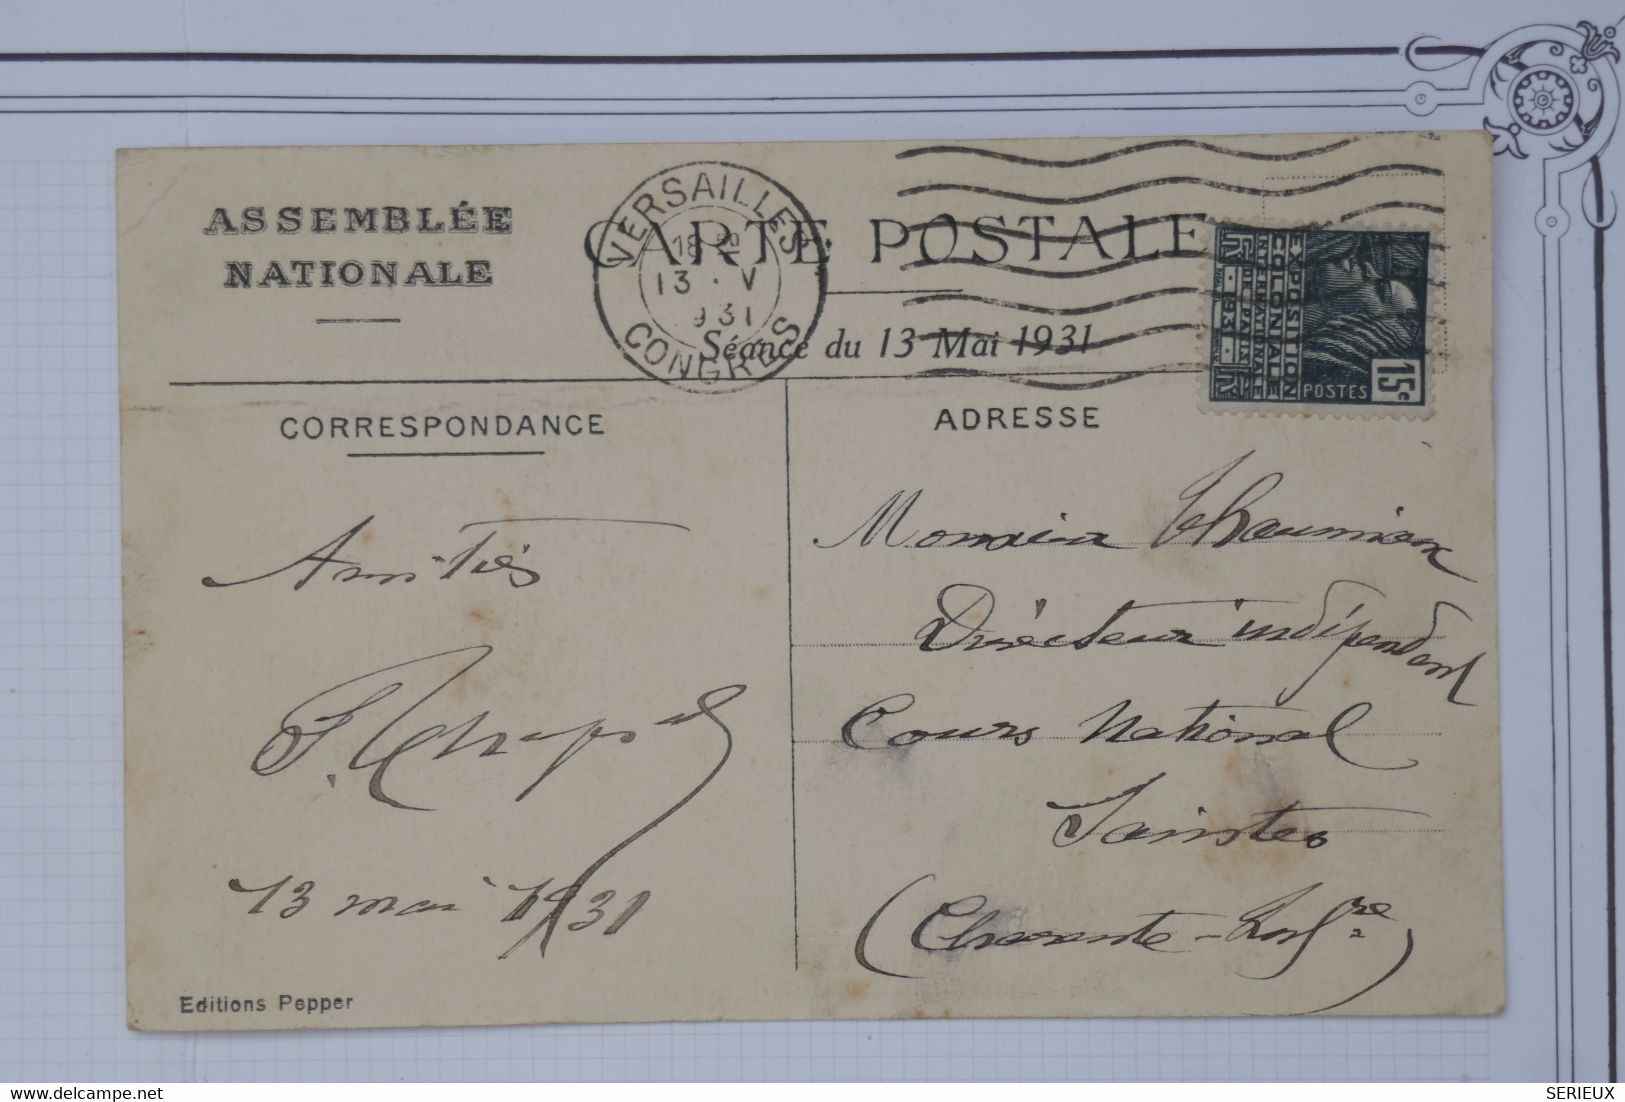 ASSEMBLÉE
NATIONALE
CARTE POSTALE
VERSAILLES
18 30
13 · V
1931
CONGRÈS
Séance du 13 Mai 1931
EXPOSITION
COLONIALE
INTERNATIONALE
DE PARIS
1931
POSTES
15c
CORRESPONDANCE
ADRESSE
Amitiés
13 mai 1931
Monsieur
Directeur indépendant
Cours National
Saintes
(Charente-Infre)
Editions Pepper
SERIEUX